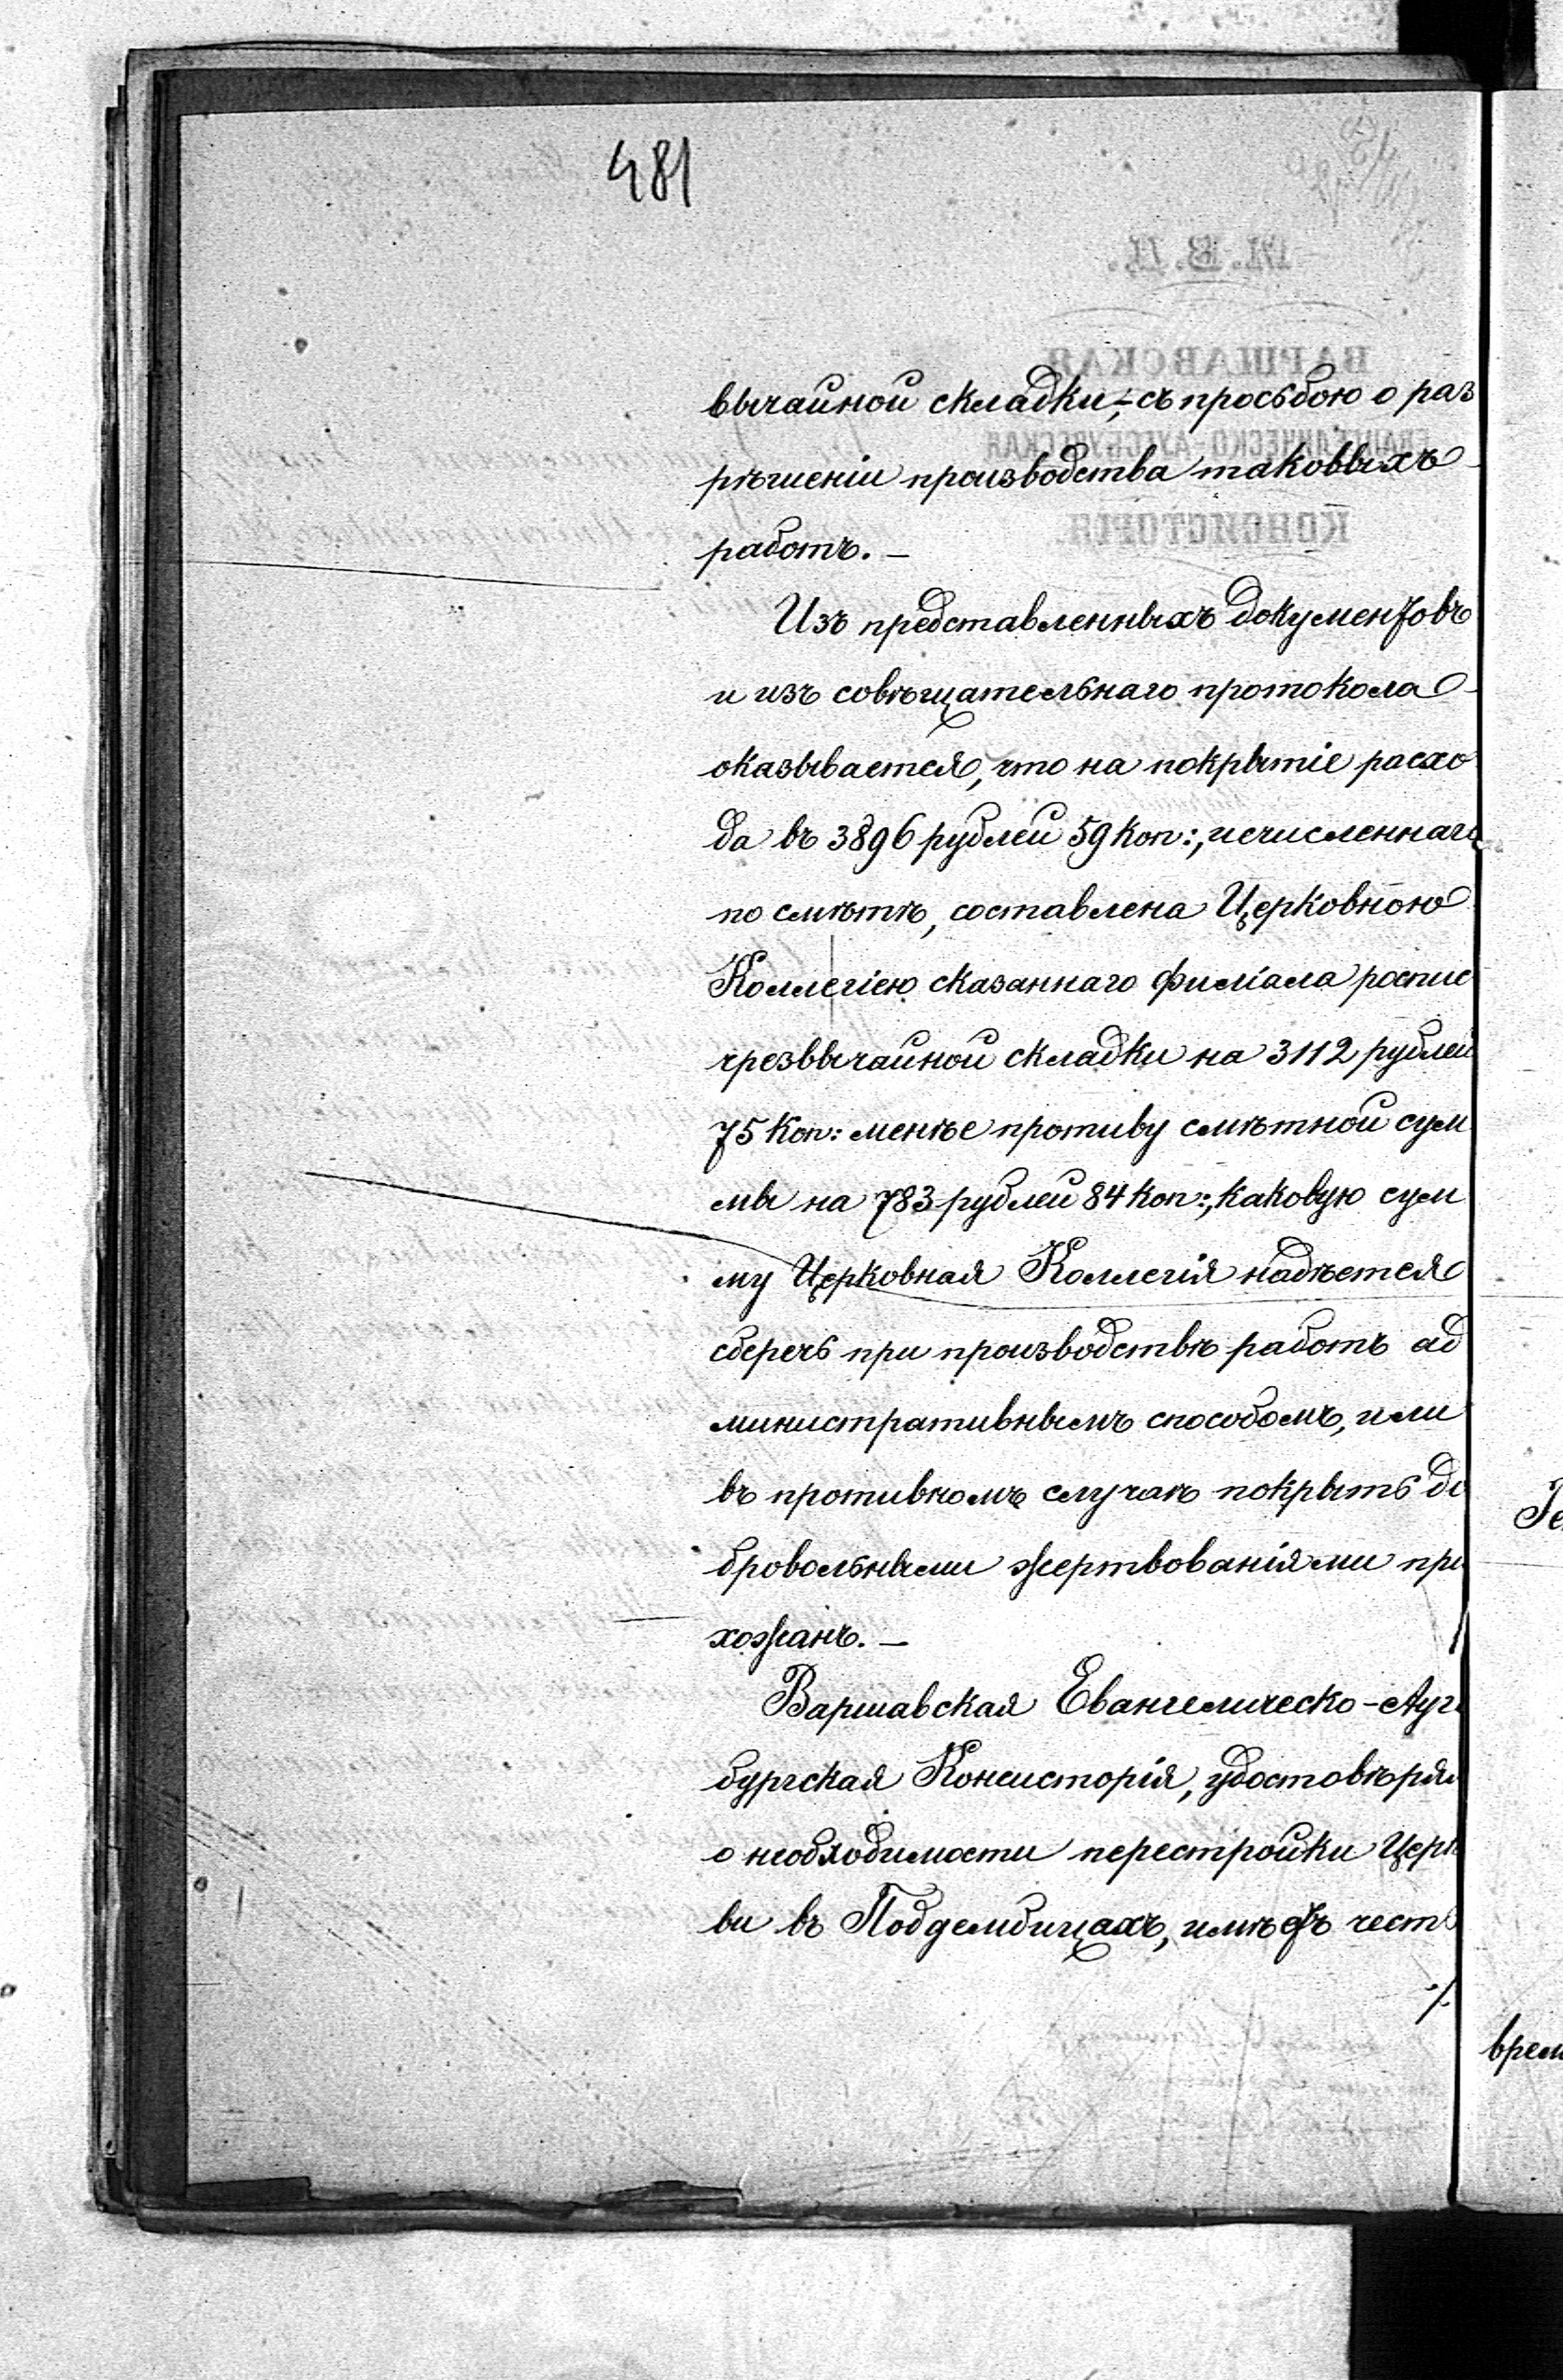 481
вычайной складки, – съ просьбою о раз
рѣшеніи производства таковыхъ
работъ. –
Изъ представленныхъ документовъ
и изъ совѣщательнаго протокола
оказывается, что на покрытіе расхо
да въ 3896 рублей 59 коп:, исчисленнаго
по смѣтѣ, составлена Церковною
Коллегіею сказаннаго филіала роспис
чрезвычайной складки на 3112 рублей
75 коп: менѣе противу смѣтной сум
мы на 783 рублей 84 коп:, каковую сум
му Церковная Коллегія надѣется
сберечь при производствѣ работъ ад
министративнымъ способомъ, или
въ противномъ случаѣ покрыть до
бровольными жертвованіями при
хожанъ. –
Варшавская Евангелическо-Ауг
бургская Консисторія, удостовѣряя
о необходимости перестройки Церк
ви въ Поддембицахъ, имѣетъ честь
./.
М. В. Д.
ВАРШАВСКАЯ
ЕВАНГЕЛИЧЕСКО-АУГСБУРГСКАЯ
КОНСИСТОРІЯ.
врем